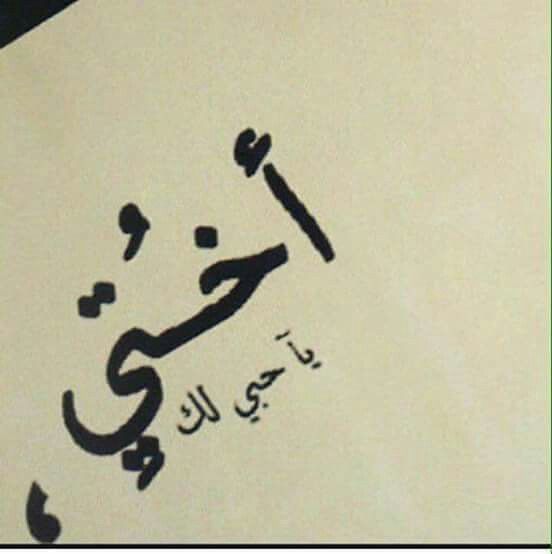 أخُتي،
يآ حبي لك